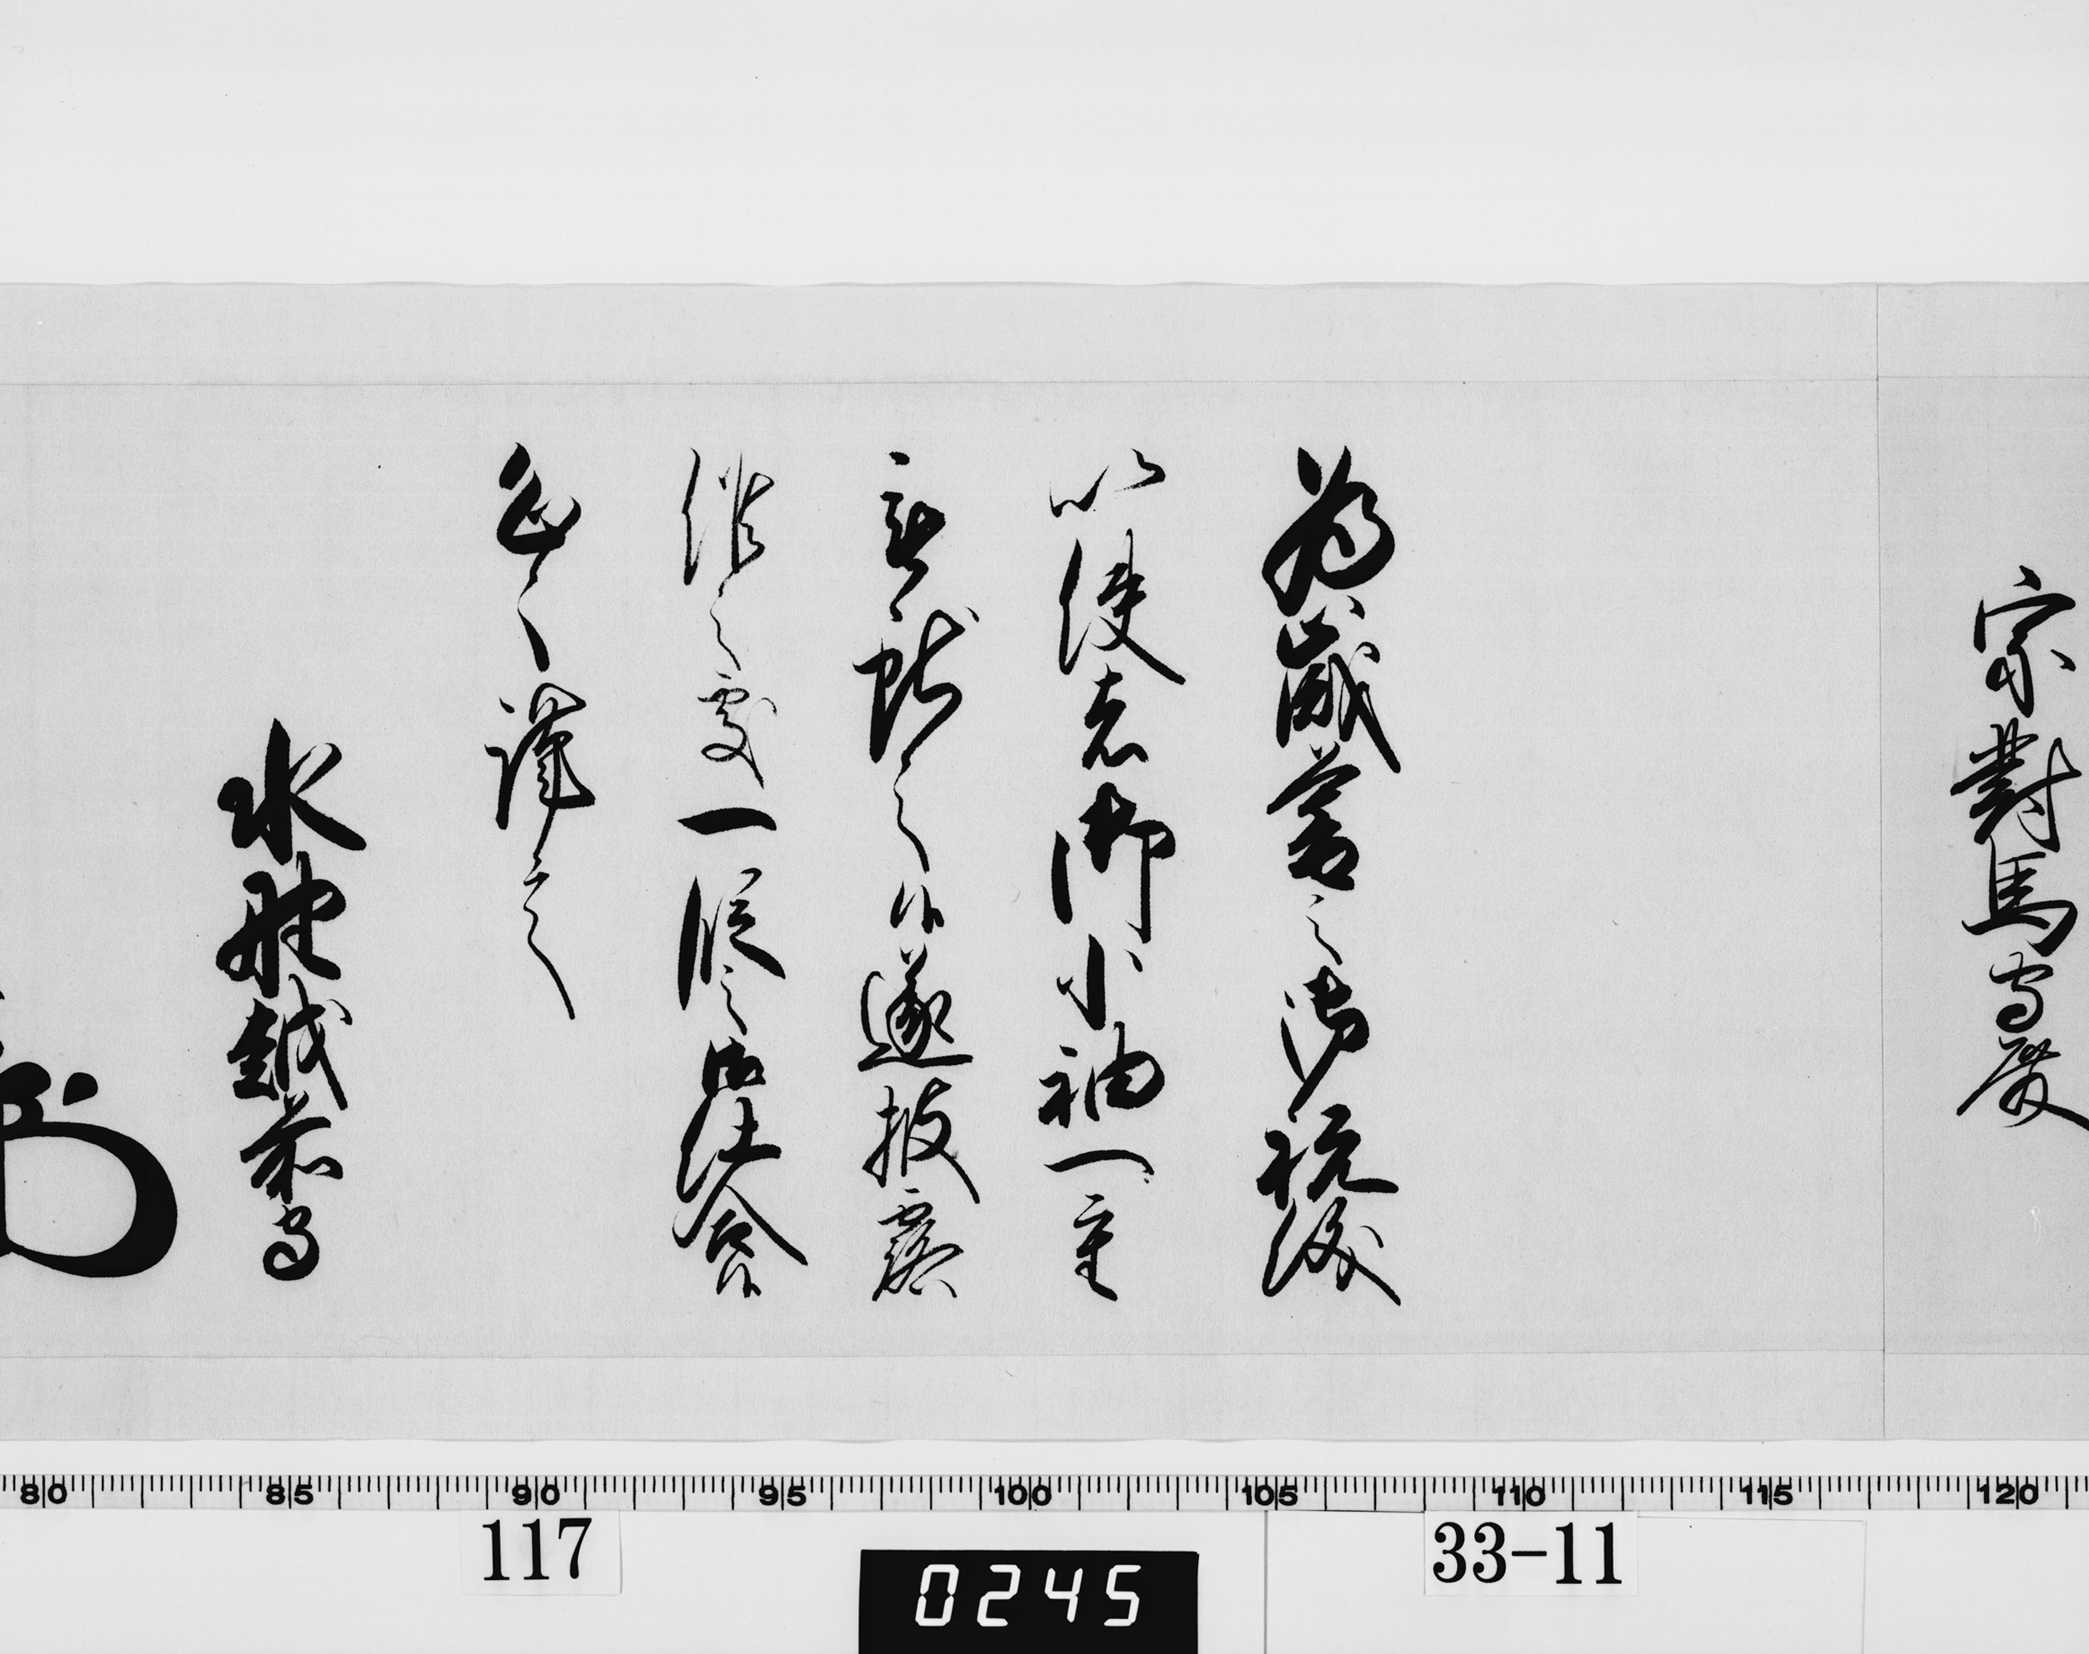 宗對馬守殿
為歳暮之御祝儀
以使者御小袖一重
獻之候遂披露
候之處一段之御仕合候
恐々謹言
水野越前守
80 85 90 95 100 105 110 115 120
117 33-11
0245